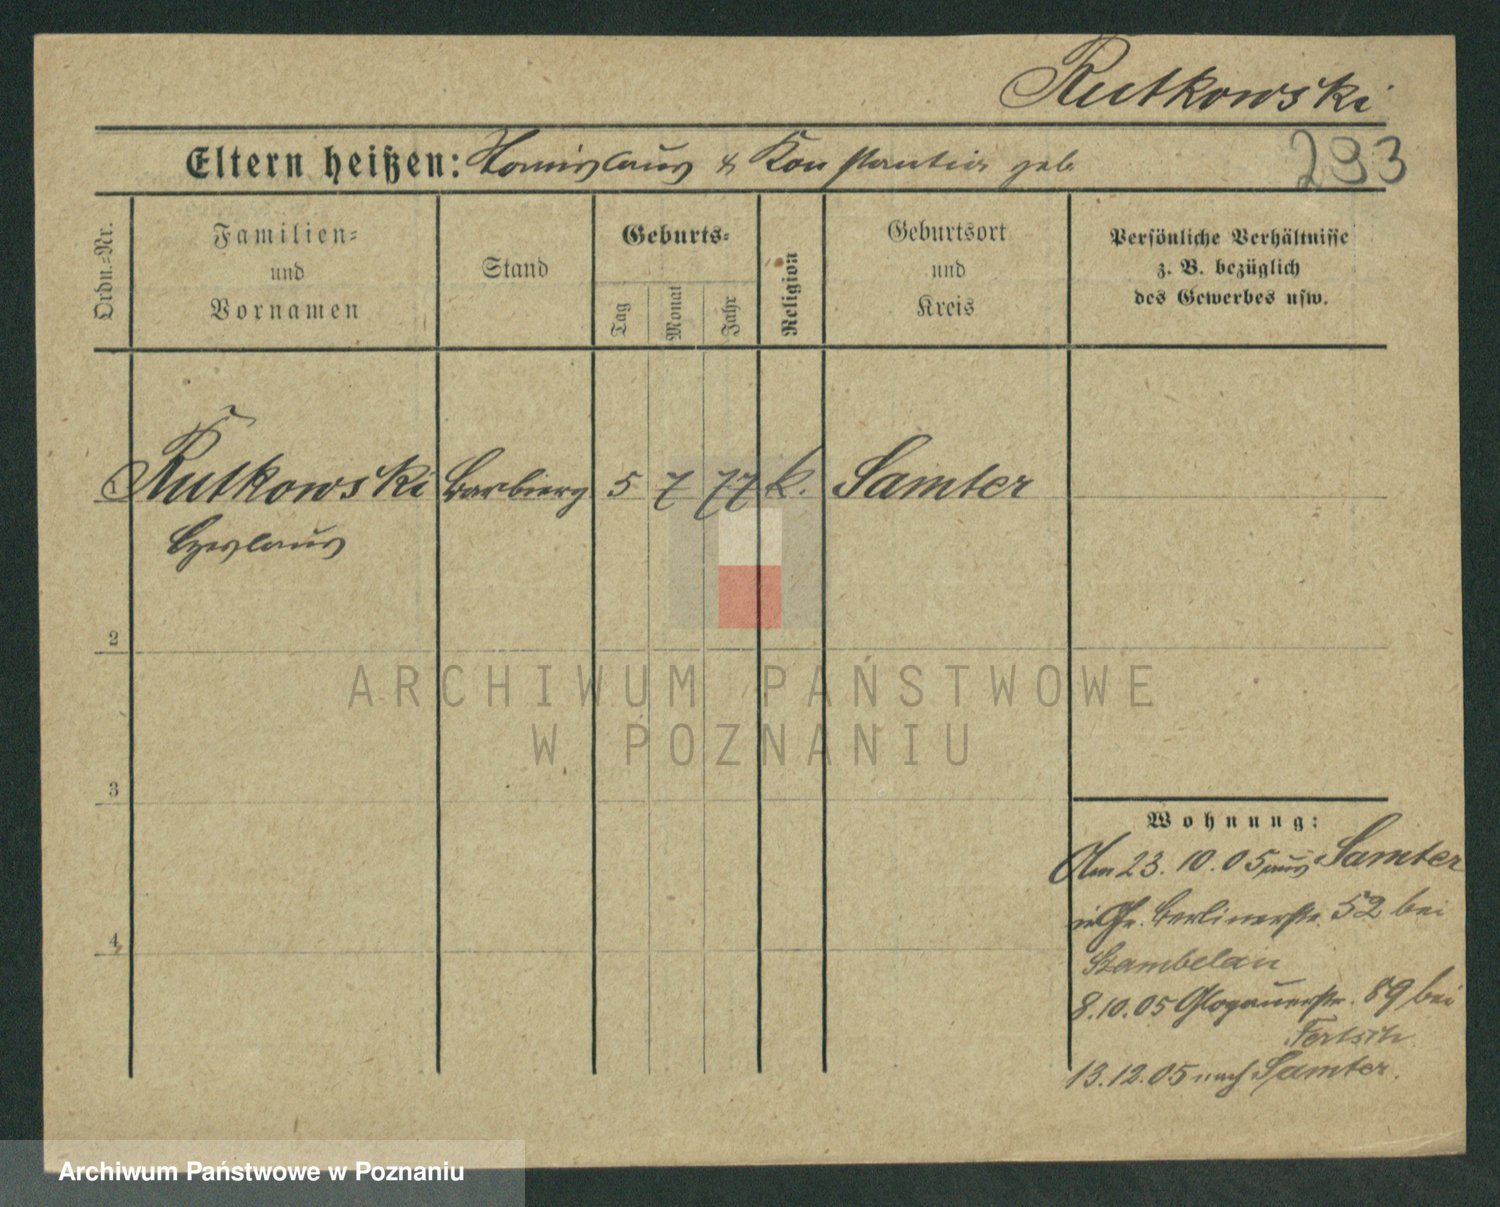 Rutkowski
Eltern heißen: Stanislaus & Konstantia geb
293
Ordn.=Nr.
Familien=
und
Vornamen
Stand
Geburts=
Tag
Monat
Jahr
Religion
Geburtsort
und
Kreis
Persönliche Verhältnisse
z. B. bezüglich
des Gewerbes usw.
Rutkowski Barbierg 5 7 77 k. Samter
Czeslaus
2
3
4
ARCHIWUM PAŃSTWOWE
W POZNANIU
Wohnung:
Am 23.10.05 aus Samter
Gr. Berlinerstr. 52 bei
Stambelau
8.10.05 Glogauerstr. 89 bei
Fertsch
13.12.05 nach Samter.
Archiwum Państwowe w Poznaniu